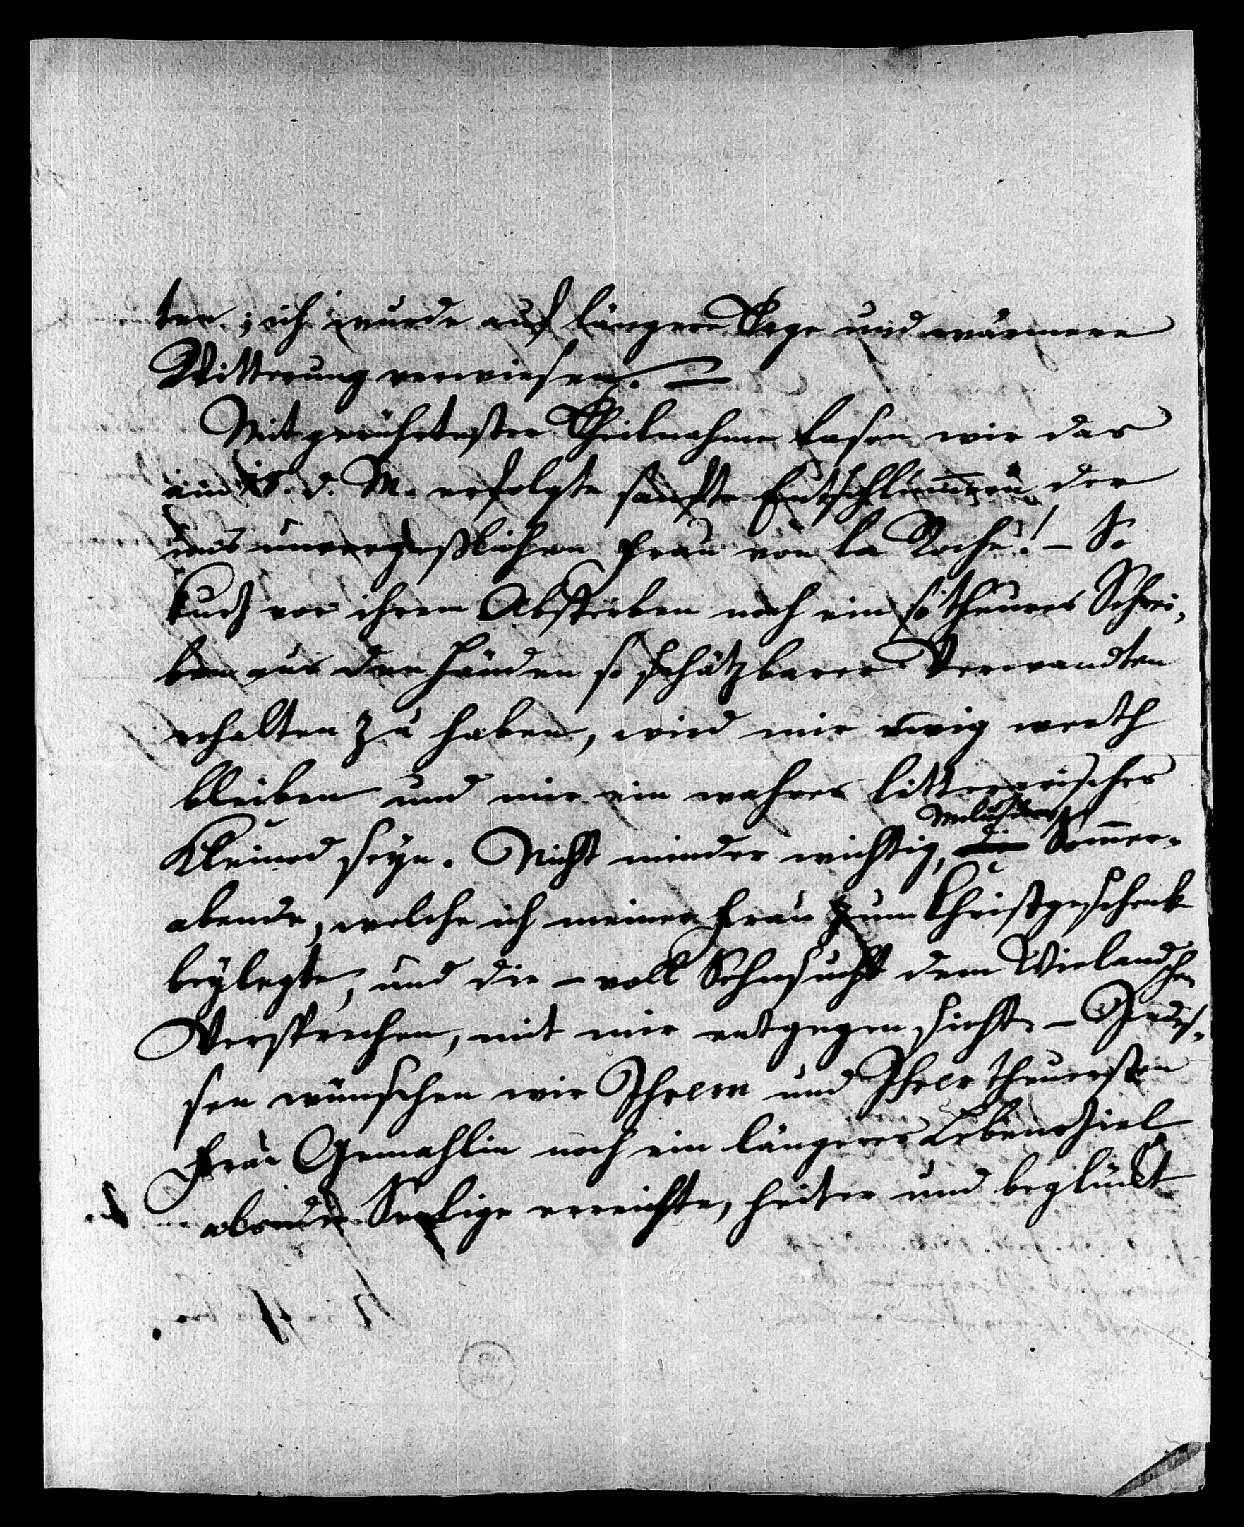 ten; ich wurde auf längere Tage und wärmere
Witterung verwiesen. —
Mit gerührtester Theilnahme lasen wir das
am 18. d. M. erfolgte sanfte Entschlummern der
uns unvergeßlichen Frau von la Roche! — So
kurz vor ihrem Absterben noch ein so theures Schrei-
ben aus den Händen so schätzbarer Verwandten
erhalten zu haben, wird mir ewig werth
bleiben und mir ein wahres litterarisches
Kleinod seyn. Nicht minder wichtig, die Sommer-
abende, welche ich meiner Frau zum Christgeschenk
beylegte, und die — voll Sehnsucht dem Wielandschen
Versprechen, mit mir entgegen sieht. —
sen wünschen wir Ihrem und Ihrer theuersten
Frau Gemahlin noch ein längeres Lebensziel
als die Seelige erreichte, heiter und beglückt